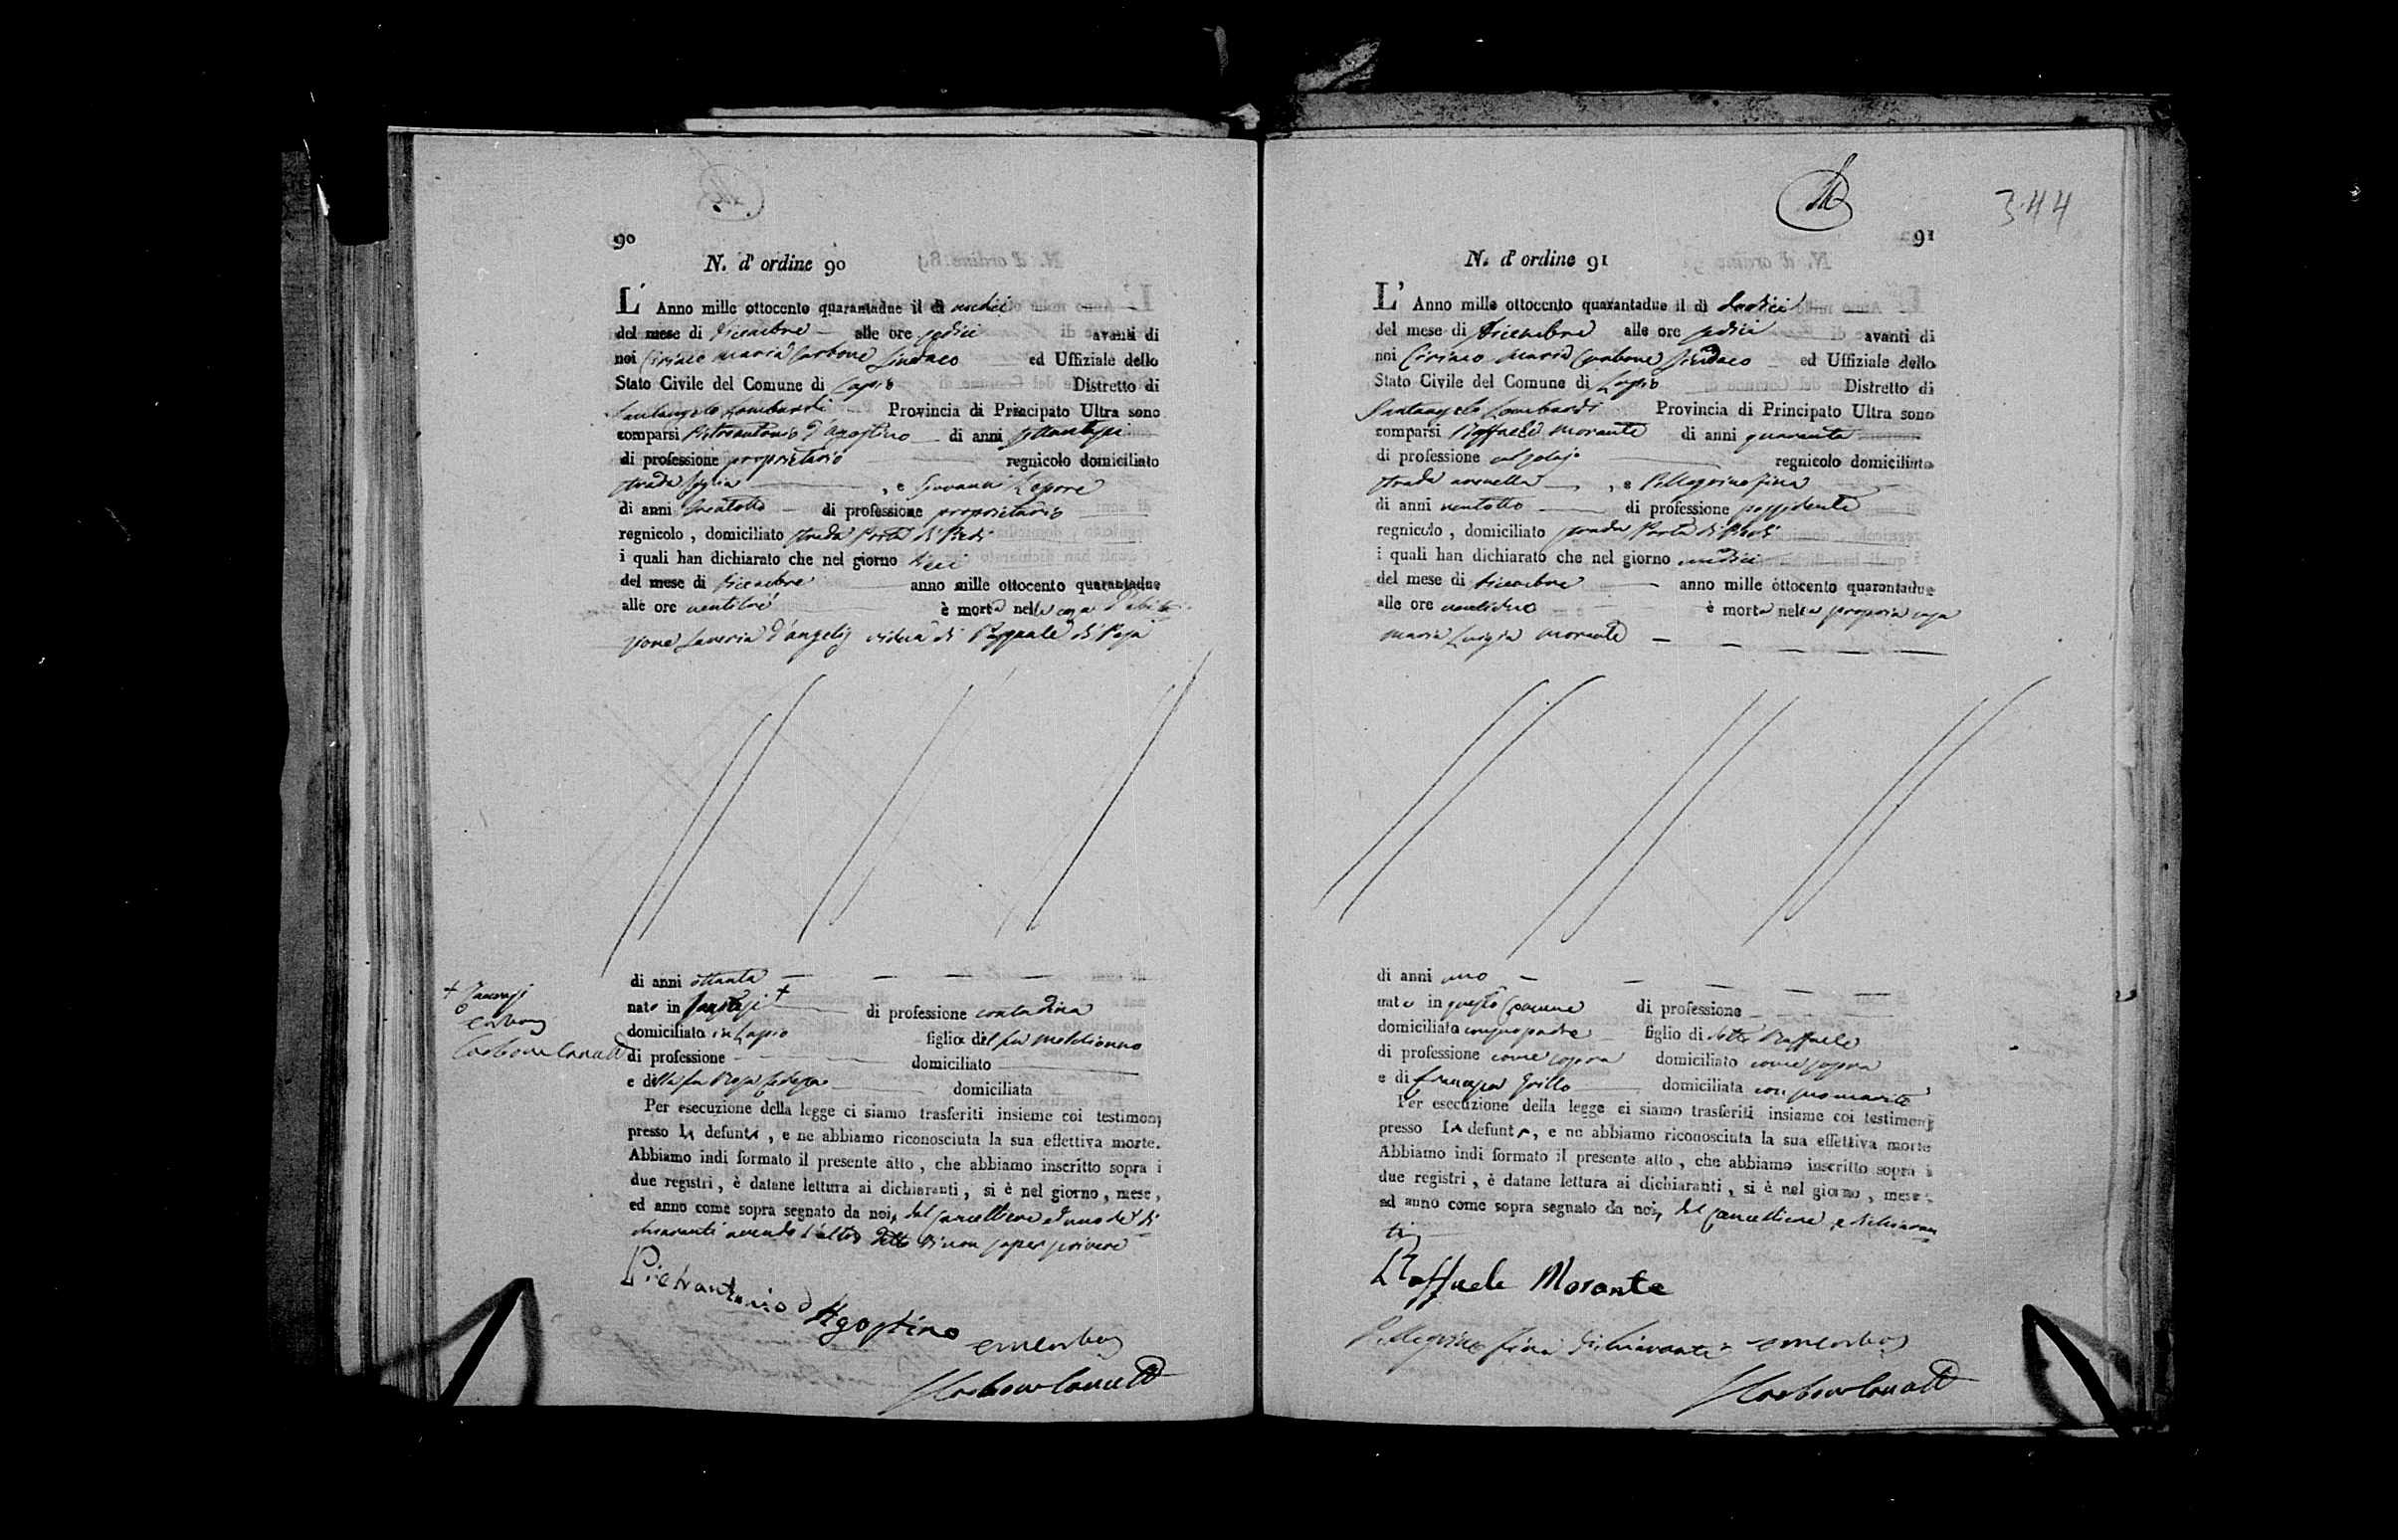 90
N. d' ordine 90
L' Anno mille ottocento quarantadue il dì undici
del mese di Dicembre alle ore sedici avanti di
noi Ciriaco Maria Carbone Sindaco ed Uffiziale dello
Stato Civile del Comune di Lapio Distretto di
Santangelo Lombardi Provincia di Principato Ultra sono
comparsi Pietrantonio d'Agostino di anni
di professione proprietario regnicolo domiciliato
strada , e Giovanni Lepore
di anni di professione proprietario
regnicolo , domiciliato strada Porta di Piedi
i quali han dichiarato che nel giorno dieci
del mese di Dicembre anno mille ottocento quarantadue
alle ore ventitrè è morta nella casa d'abita-
zione Saveria d'Angelis vidua di Pasquale di Rosa
di anni ottanta
nata in + di professione contadina
domiciliata in Lapio figlia del fu
di professione domiciliato
e della fu Rosa domiciliata
Per esecuzione della legge ci siamo trasferiti insieme coi testimonj
presso la defunta , e ne abbiamo riconosciuta la sua effettiva morte.
Abbiamo indi formato il presente atto , che abbiamo inscritto sopra i
due registri , è datane lettura ai dichiaranti , si è nel giorno , mese ,
ed anno come sopra segnato da noi, dal Cancelliere ed uno de' di
chiaranti avendo l'altro detto di non saper scrivere
Pietrantonio d'Agostino
344
91
N. d' ordine 91
L' Anno mille ottocento quarantadue il dì dodici
del mese di Dicembre alle ore sedici avanti di
noi Ciriaco Maria Carbone Sindaco ed Uffiziale dello
Stato Civile del Comune di Lapio Distretto di
Santangelo Lombardi Provincia di Principato Ultra sono
comparsi Raffaele Morante di anni quaranta
di professione calzolajo regnicolo domiciliato
strada , e Pellegrino Fina
di anni ventotto di professione possidente
regnicolo , domiciliato strada Porta di Piedi
i quali han dichiarato che nel giorno undici
del mese di Dicembre anno mille ottocento quarantadue
alle ore ventidue è morta nella propria casa
Maria Luigia Morante
di anni uno
nata in questo Comune di professione
domiciliata con suo padre figlio di detto Raffaele
di professione come sopra domiciliato come sopra
e di Francesca Grillo domiciliata con suo marito
Per esecuzione della legge ci siamo trasferiti insieme coi testimonj
presso la defunta, e ne abbiamo riconosciuta la sua effettiva morte
Abbiamo indi formato il presente atto , che abbiamo inscritto sopra i
due registri , è datane lettura ai dichiaranti , si è nel giorno , mese ,
ed anno come sopra segnato da noi, dal Cancelliere, e dichiaran
ti
Raffaele Morante
Pellegrino Fina dichiarante